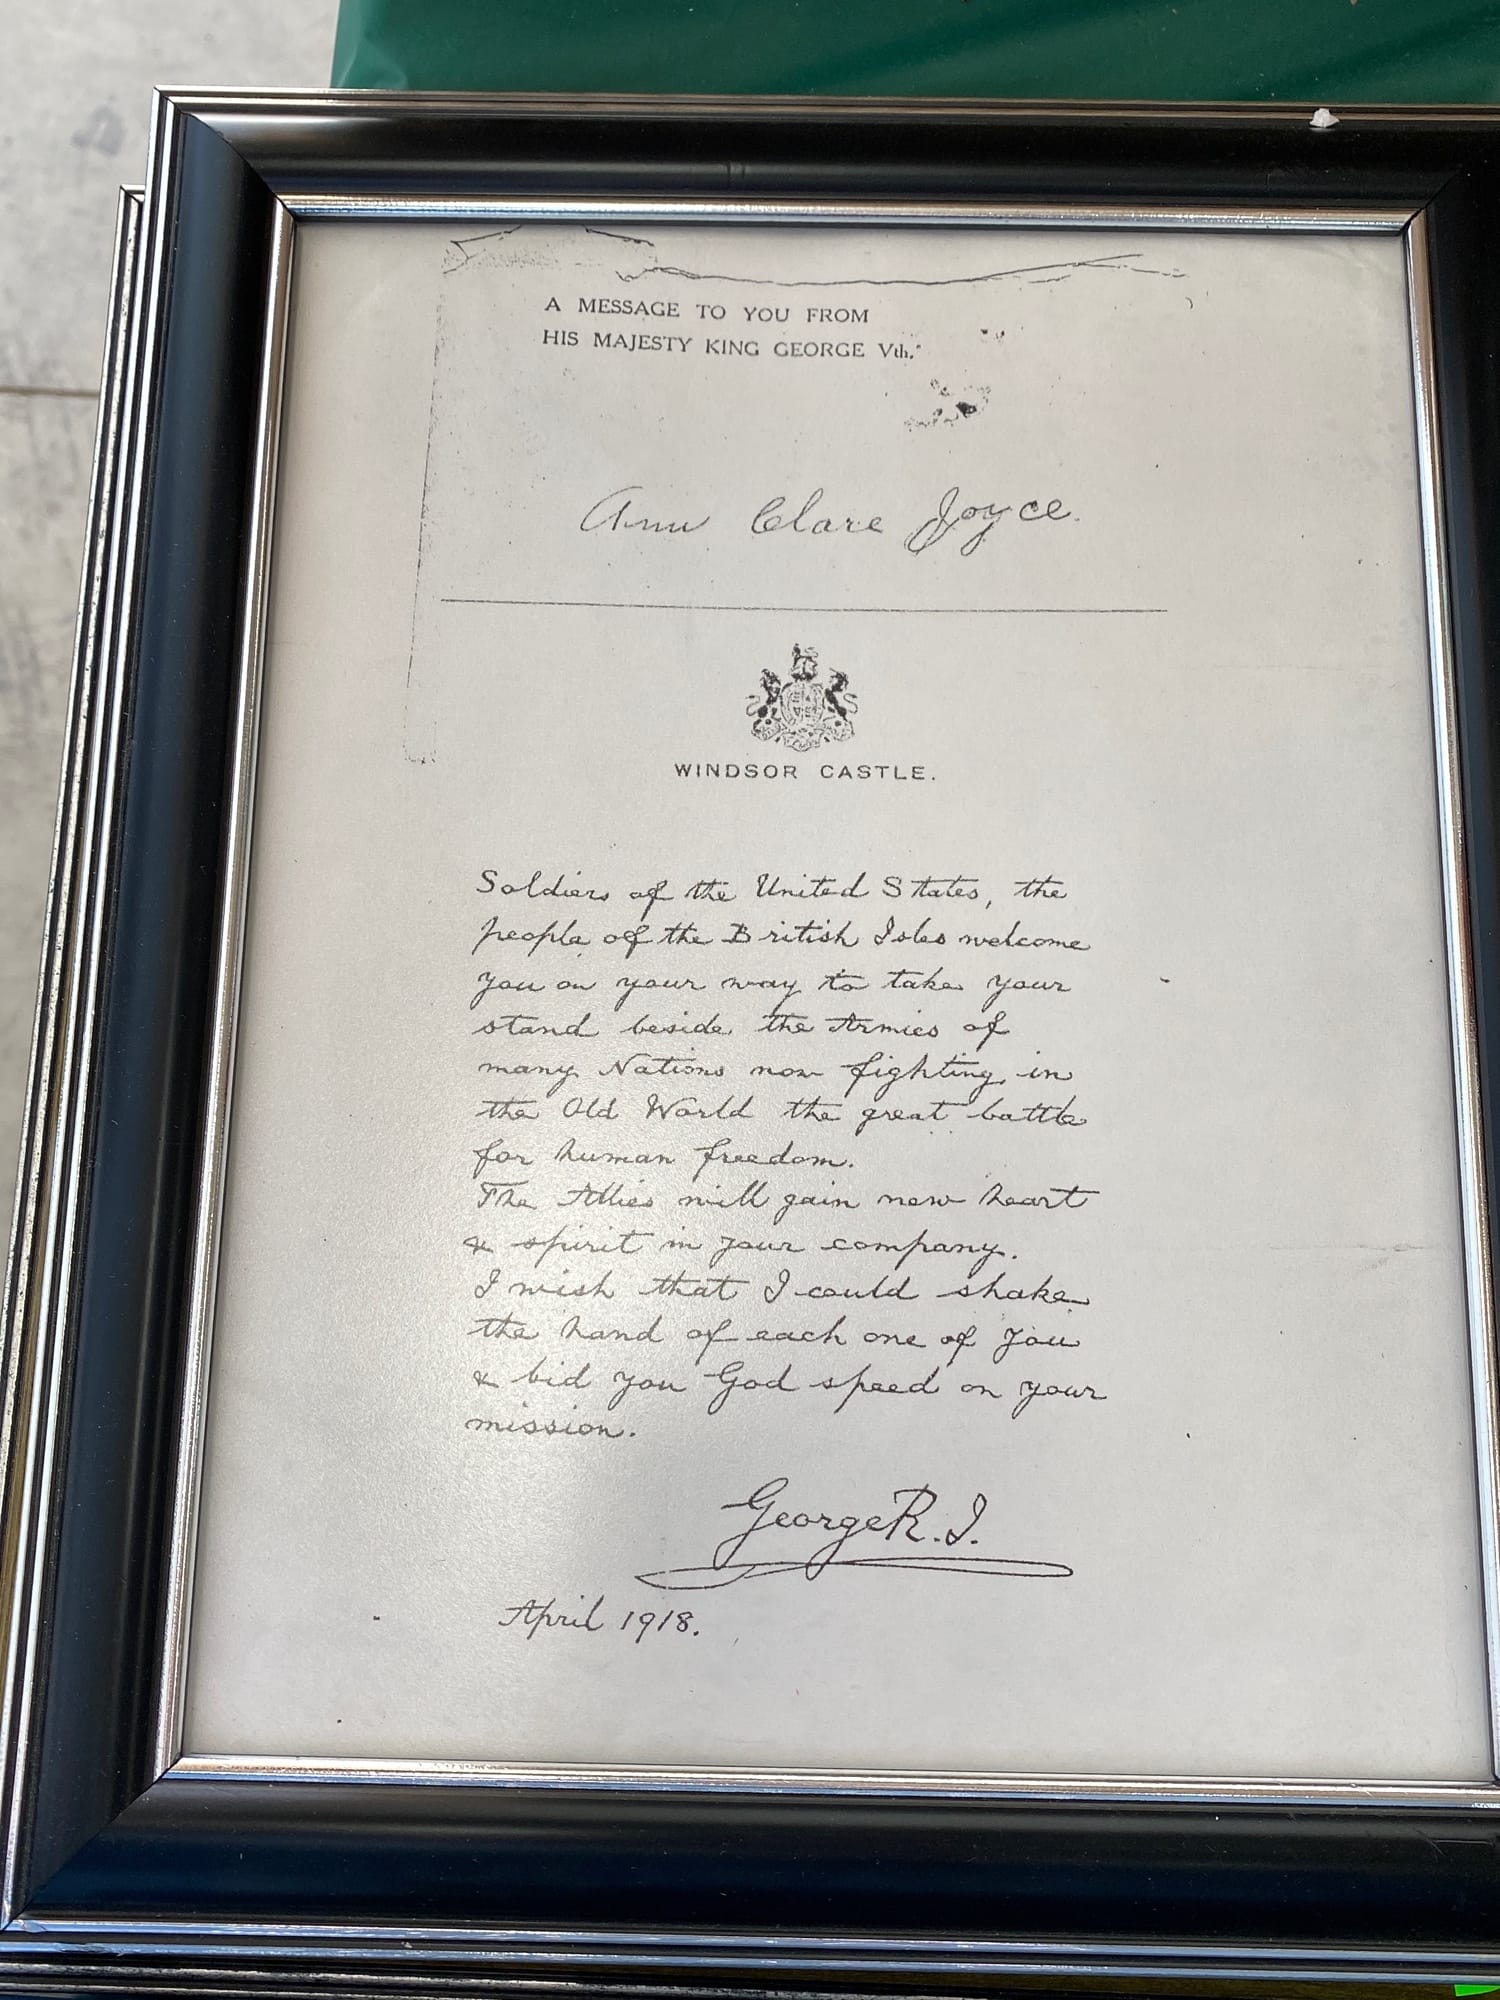 A MESSAGE TO YOU FROM
HIS MAJESTY KING GEORGE Vth.
Ann Clare Joyce.
WINDSOR CASTLE.
Soldiers of the United States, the
people of the British Isles welcome
you on your way to take your
stand beside the Armies of
many Nations now fighting in
the Old World the great battle
for human freedom.
The Allies will gain new heart
& spirit in your company.
I wish that I could shake
the hand of each one of you
& bid you God speed on your
mission.
George R.I.
April 1918.